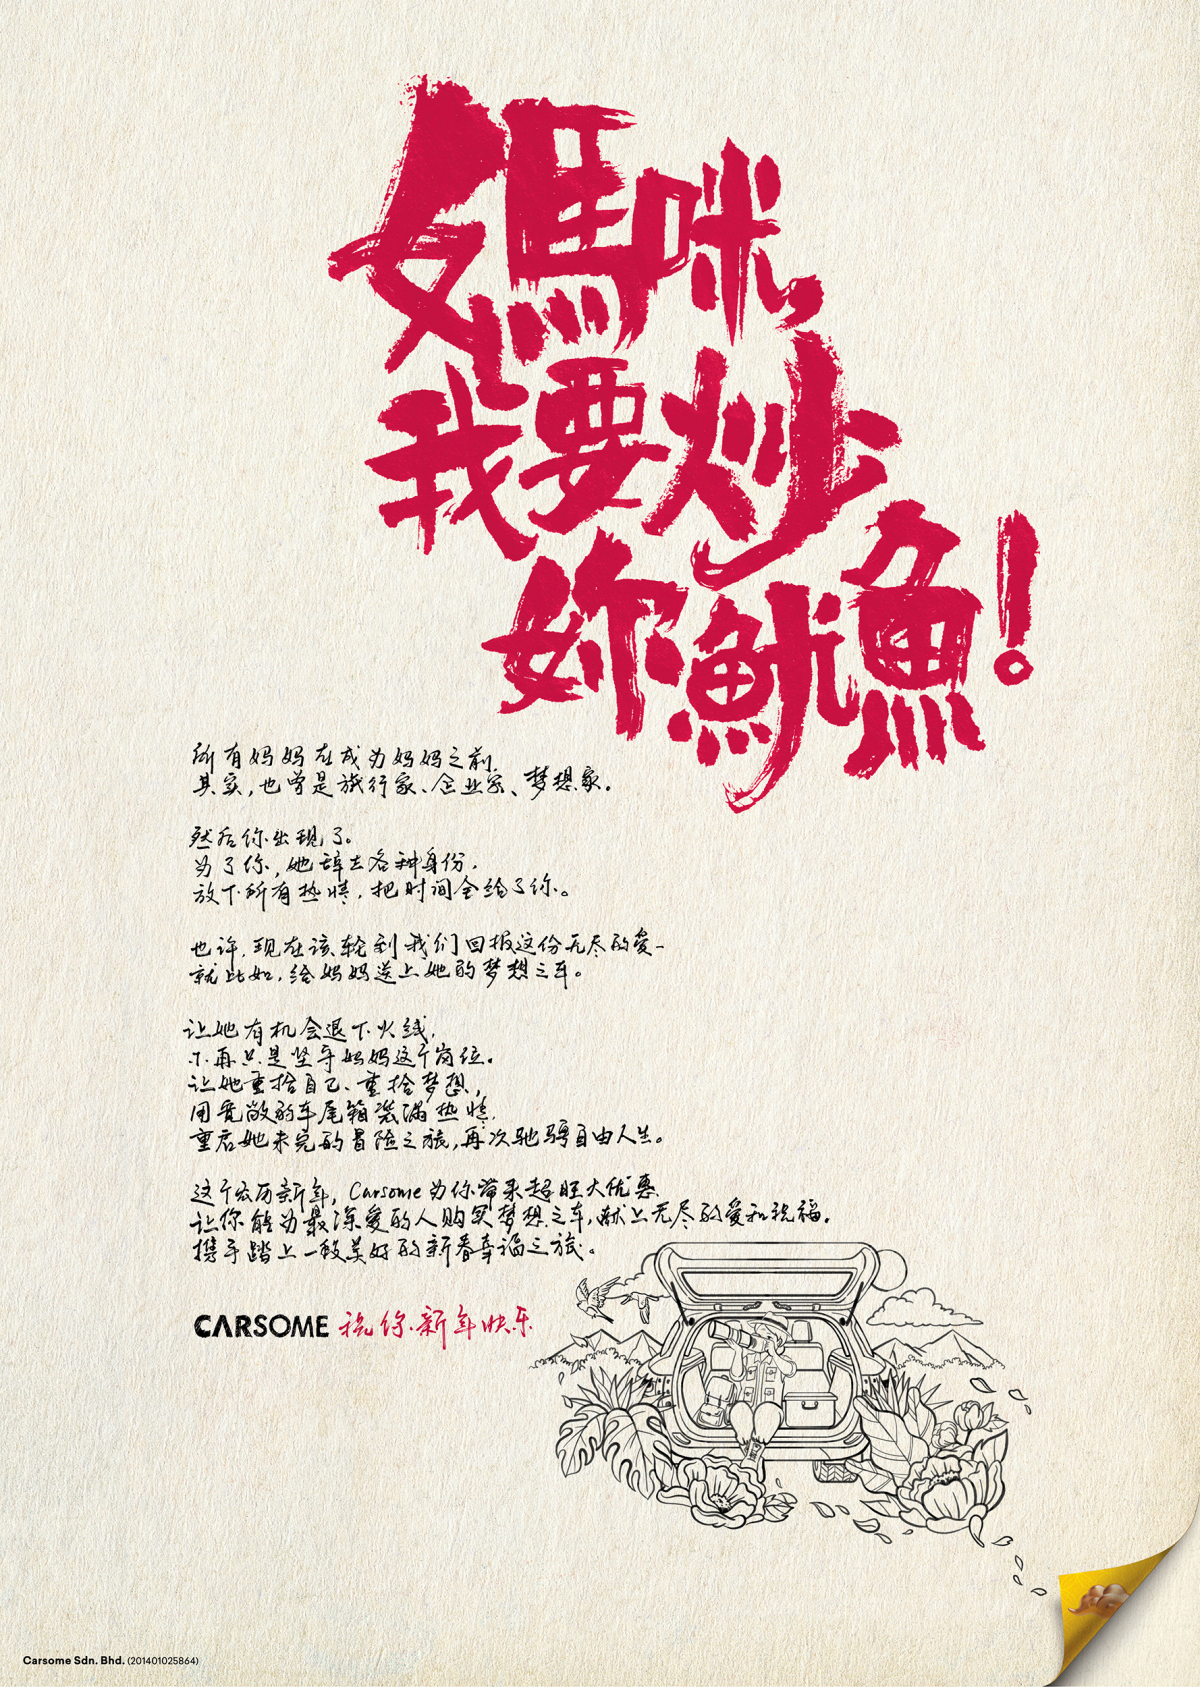 媽咪，
我要炒
妳魷魚！
所有妈妈在成为妈妈之前，
其实，也曾是旅行家、企业家、梦想家。
然后你出现了。
为了你，她辞去各种身份，
放下所有热情，把时间全给了你。
也许，现在该轮到我们回报这份无尽的爱—
就比如，给妈妈送上她的梦想之车。
让她有机会退下火线，
不再只是坚守妈妈这个岗位。
让她重拾自己、重拾梦想，
用宽敞的车尾箱装满热情，
重启她未完的冒险之旅，再次驰骋自由人生。
这个农历新年，Carsome为你带来超旺大优惠
让你能为最深爱的人购买梦想之车，献上无尽的爱和祝福。
携手踏上一段美好的新春幸福之旅。
CARSOME 祝你新年快乐
Carsome Sdn. Bhd. (201401025864)